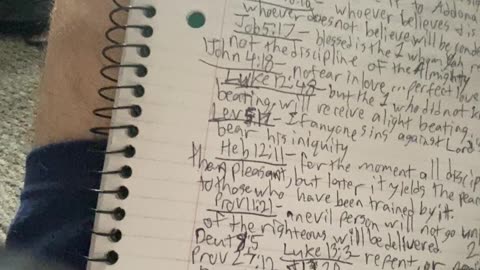 whoever believes is
whoever does not believe will be
Job 5:17 - blessed is the 1 whom
not the discipline of the Almighty
John 4:18 - no fear in love... perfect love
Luke 12:48 - but the 1 who did not
beating, will receive a light beating,
Lev - If anyone sins against Lord
bear his iniquity
Heb 12:11 - for the moment all discip
pleasant, but later it yields the peac
to those who have been trained by it.
Prov 11:21 - an evil person will not go un
of the righteous will be delivered.
Deut 5 Luke 13:3 - repent or
Prov 27:12